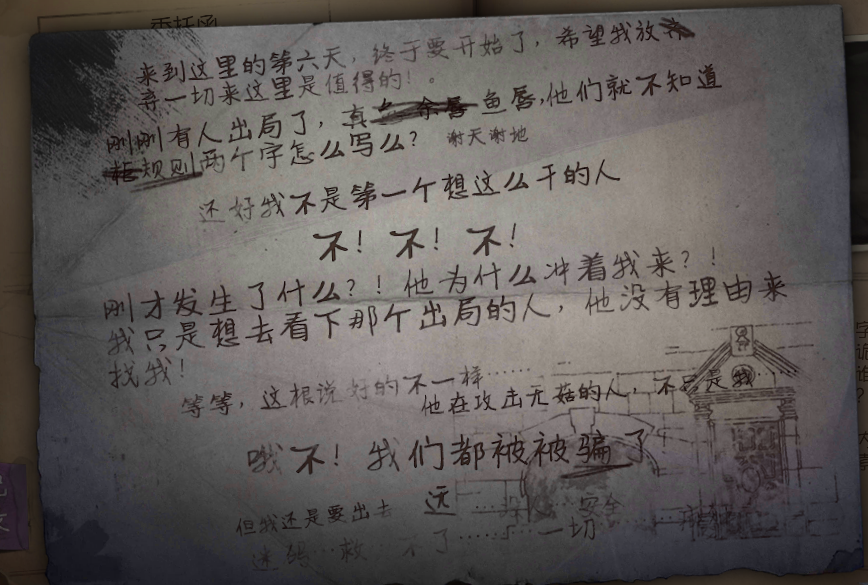 委托函
来到这里的第六天，终于要开始了，希望我放弃
弃一切来这里是值得的！。
刚刚有人出局了，真 鱼唇,他们就不知道
规则两个字怎么写么？ 谢天谢地
还好我不是第一个想这么干的人
不！不！不！
刚才发生了什么？！他为什么冲着我来？！
我只是想去看下那个出局的人，他没有理由来
找我！
等等，这根说好的不一样……
他在攻击无菇的人，不只是我……
哦不！我们都被被骗了
但我还是要出去
安全
救 不了 一切